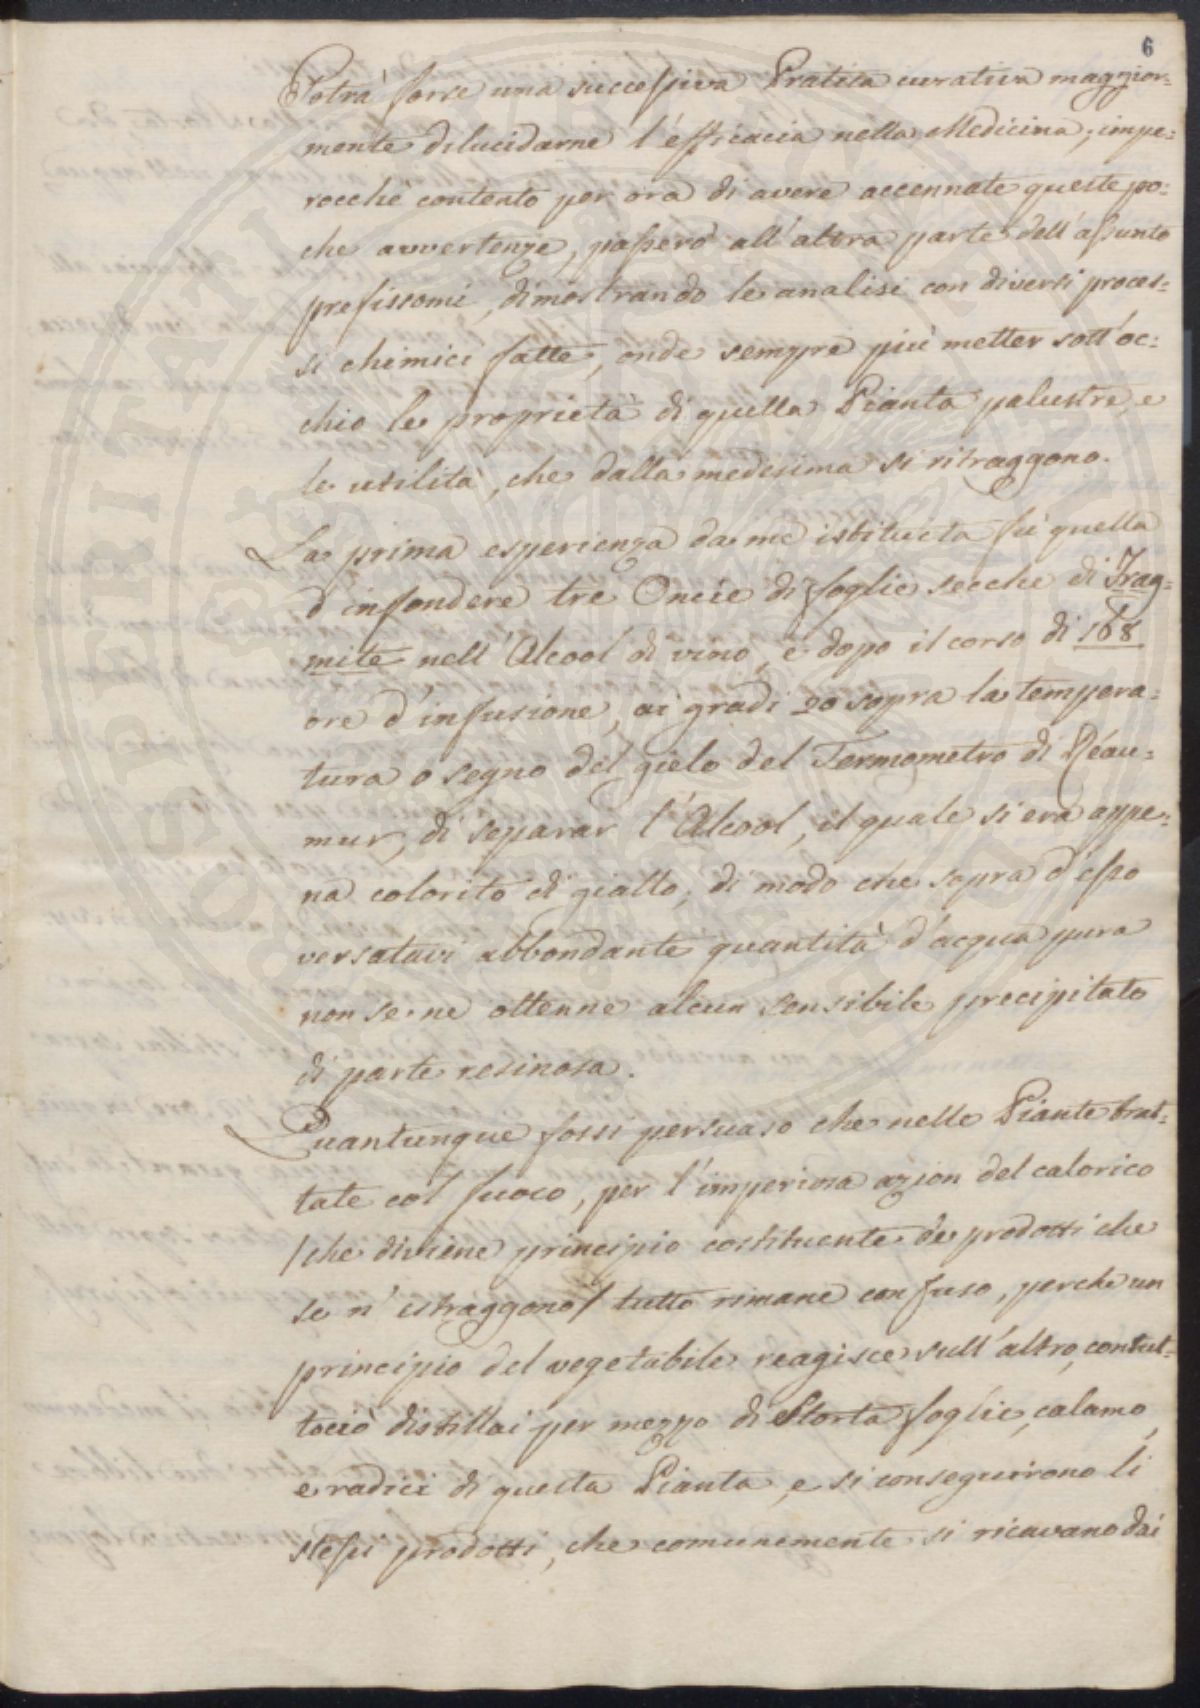 6
Potrà forse una successiva Pratica curativa maggior=
mente dilucidarne l'efficacia nella Medicina; impe=
rocchè contento per ora di avere accennate queste po=
che avvertenze, passerò all'altra parte dell'assunto
prefissomi, dimostrando le analisi con diversi proces=
si chimici fatte, onde sempre più metter sott'oc=
chio le proprietà di quella Pianta palustre, e
le utilità, che dalla medesima si ritraggono.
La prima esperienza da me istituita fù quella
d'infondere tre Oncie di foglie secche di Frag=
mite nell'Alcool di vino, e dopo il corso di 168
ore d'infusione, ai gradi 20 sopra la tempera=
tura o segno del gielo del Termometro di Réau=
mur, di separar l'Alcool, il quale si era appe=
na colorito di giallo, di modo che sopra d'esso
versatavi abbondante quantità d'acqua pura
non se ne ottenne alcun sensibile precipitato
di parte resinosa.
Quantunque fossi persuaso che nelle Piante trat=
tate col fuoco, per l'imperiosa azion del calorico
/che diviene principio costituente de prodotti che
se n'estraggono/ tutto rimane confuso, perche un
principio del vegetabile reagisce sull'altro, contut=
tociò distillai per mezzo di Storta foglie, calamo,
e radici di questa Pianta, e si conseguirono li
stessi prodotti, che comunemente si ricavano dai